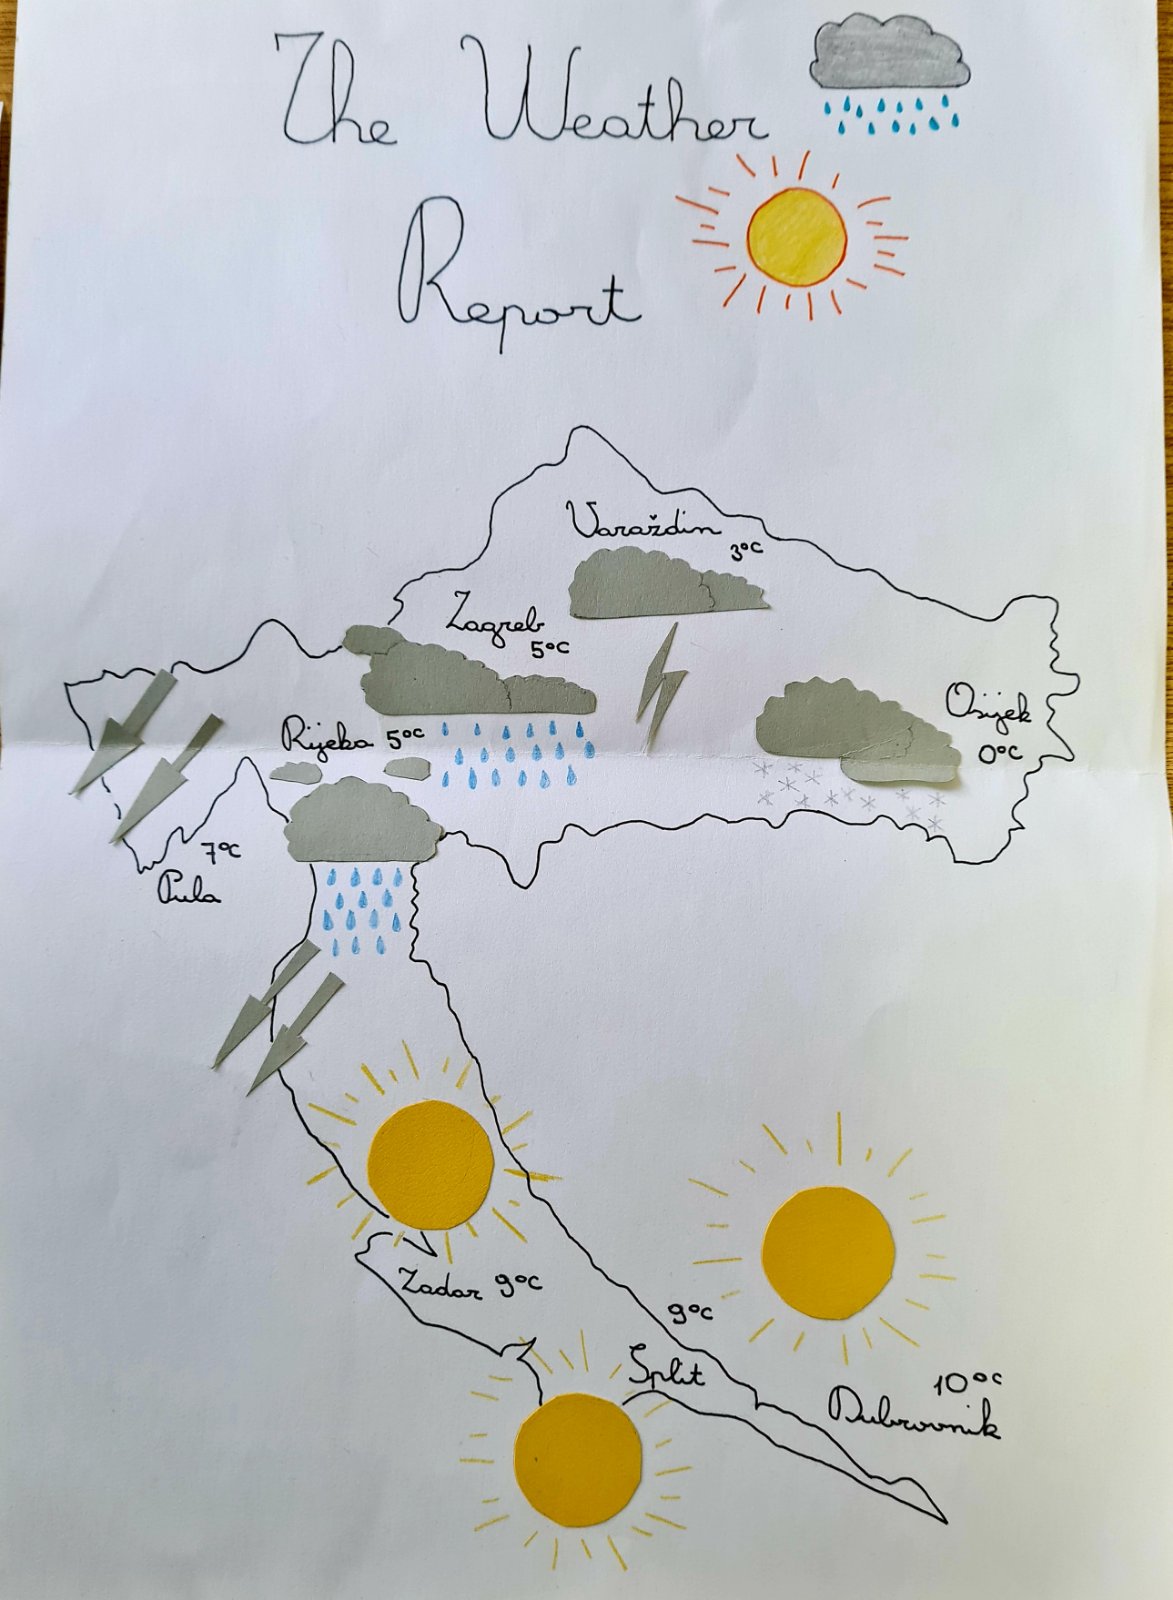 The Weather
Report
Varaždin
3°C
Zagreb
5°C
Osijek
0°C
Rijeka 5°C
7°C
Pula
Zadar 9°C
9°C
Split
10°C
Dubrovnik